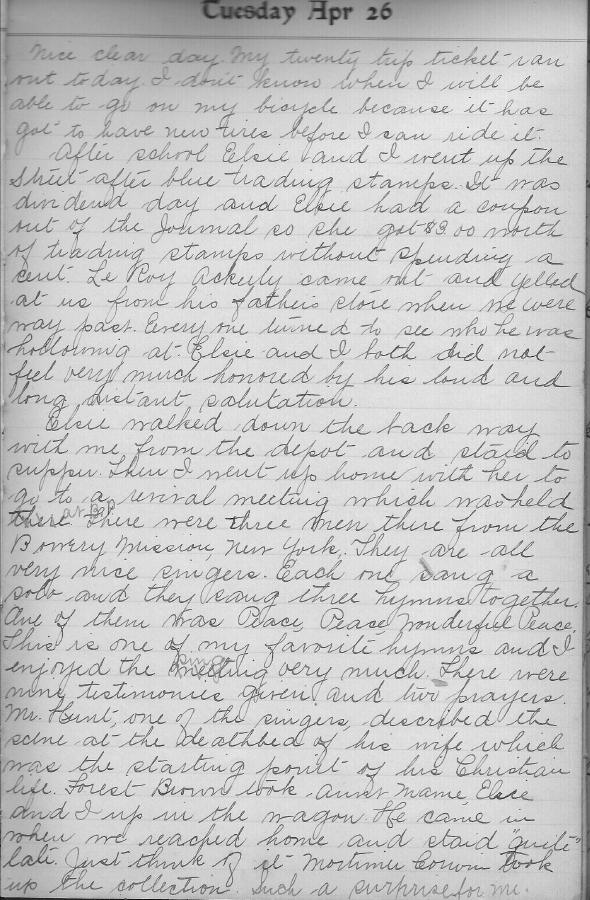 Tuesday Apr 26
Nice clear day. My twenty trip ticket ran
out today. I don't know when I will be
able to go on my bicycle because it has
got to have new tires before I can ride it.
After school Elsie and I went up the
street after blue trading stamps. It was
dividend day and Elsie had a coupon
out of the Journal so she got $3.00 worth
of trading stamps without spending a
cent. Le Roy Ackerly came out and yelled
at us from his father's store when we were
way past. Every one turned to see who he was
hollowing at. Elsie and I both did not
feel very much honored by his loud and
long distant salutation.
Elsie walked down the back way
with me from the depot and staid to
supper. Then I went up home with her to
go to a revival meeting which was held
there. There were three men there from the
Bowery Mission, New York. They are all
very nice singers. Each one sang a
solo and they sang three hymns together.
One of them was Peace, Peace, Wonderful Peace.
This is one of my favorite hymns and I
enjoyed the meeting very much. There were
nine testimonies given and two prayers.
Mr. Hunt, one of the singers, described the
scene at the deathbed of his wife which
was the starting point of his Christian
life. Forest Brown took Aunt Mame Elsie
and I up in the wagon. He came in
when we reached home and staid "quite"
late. Just think of it Mortimer Corwin took
up the collection. Such a surprise for me.